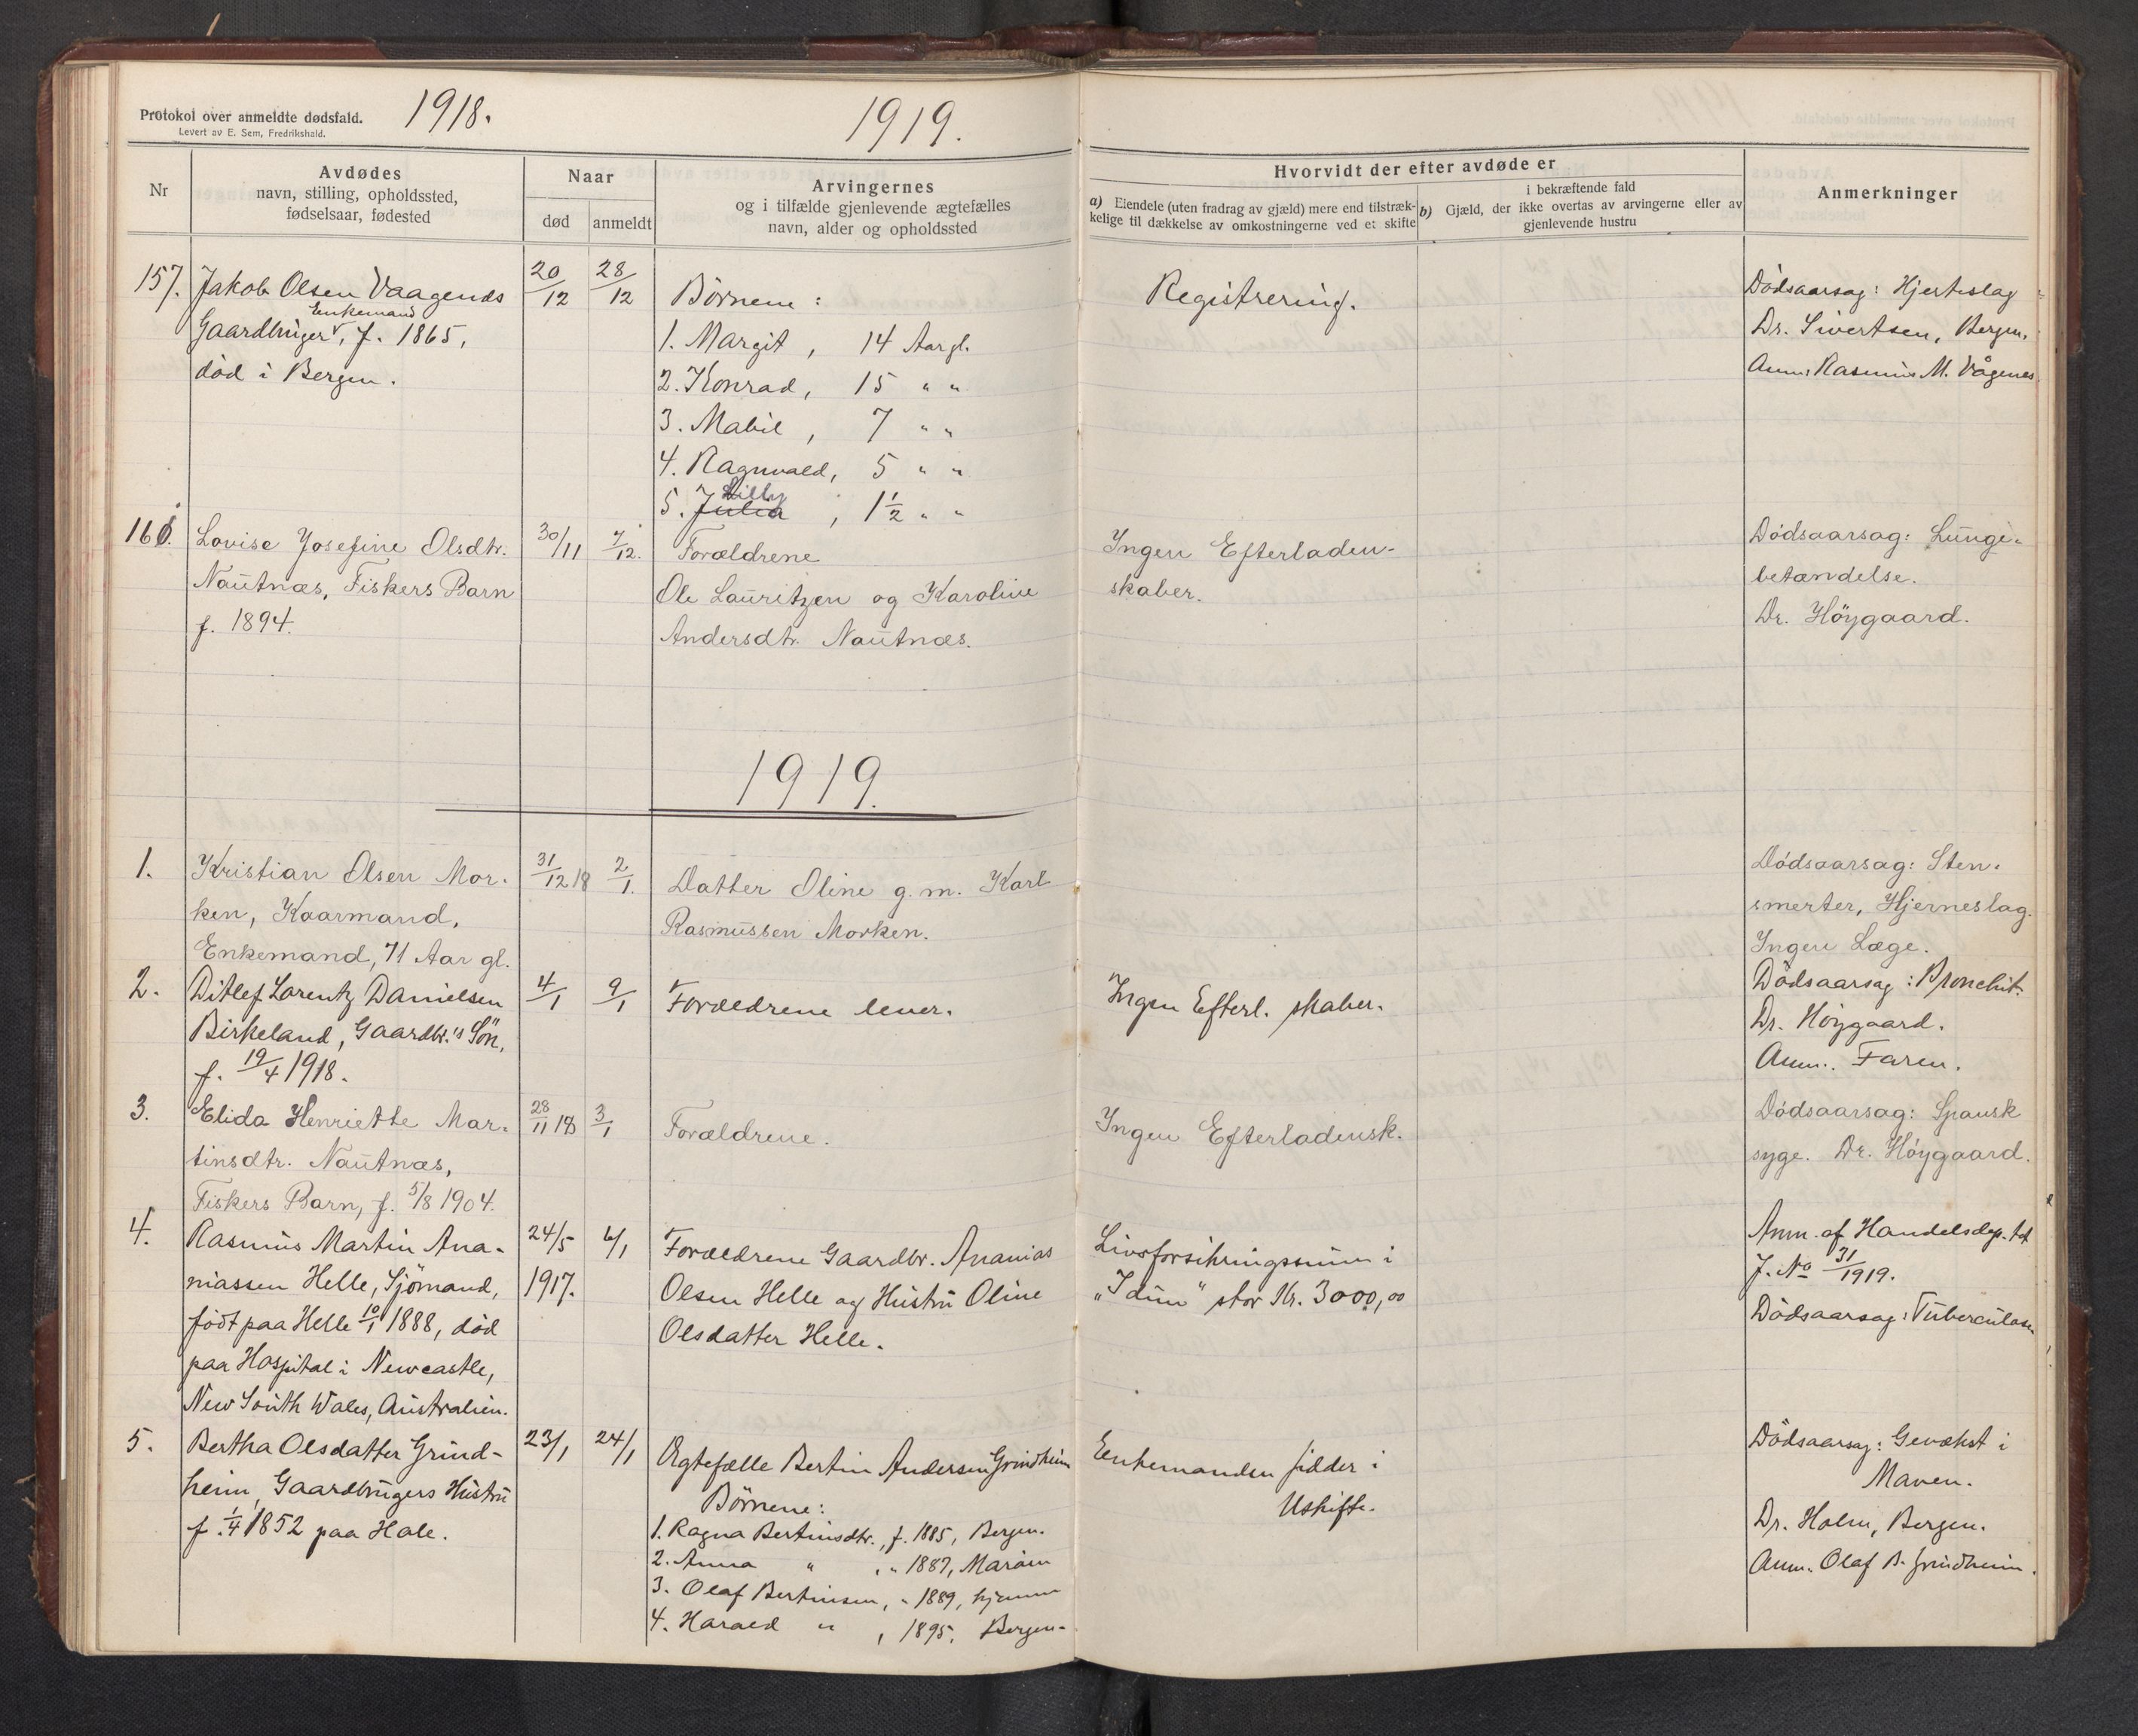 Protokol over anmeldte dødsfald. 1918. 1919.
Levert av E. Sem, Fredrikshald.
Nr
Avdødes
navn, stilling, opholdssted,
fødselsaar, fødested
Naar
død
anmeldt
Arvingernes
og i tilfælde gjenlevende ægtefælles
navn, alder og opholdssted
Hvorvidt der efter avdøde er
a) Eiendele (uten fradrag av gjæld) mere end tilstræk-
kelige til dækkelse av omkostningerne ved et skifte
i bekræftende fald
b) Gjæld, der ikke overtas av arvingerne eller av
gjenlevende hustru
Anmerkninger
157.
Jakob Olsen Vaagenes
Enkemand
Gaardbruger, f. 1865,
död i Bergen.
20/12
28/12
Börnene:
1. Margit, 14 Aar gl.
2. Konrad, 15 " "
3. Mabil, 7 " "
4. Ragnvald, 5 " "
Lilly
5. Julia, 1½ " "
Registrering.
Dödsaarsag: Hjerteslag
Dr. Sivertsen, Bergen.
Anm: Rasmus M. Vågenes
160.
Lovise Josefine Olsdtr.
Nautnæs, Fiskers Barn
f. 1894.
30/11
7/12.
Forældrene
Ole Lauritzen og Karoline
Andersdtr. Nautnæs.
Ingen Efterladen-
skaber.
Dödsaarsag: Lunge-
betændelse.
Dr. Höygaard.
1919.
1.
Kristian Olsen Mor-
ken, Kaarmand,
Enkemand, 71 Aar gl.
31/12 18
2/1.
Datter Oline g. m. Karl
Rasmussen Morken.
Dödsaarsag: Sten-
smerter, Hjerneslag.
Ingen Læge.
2.
Ditlef Lorentz Danielsen
Birkeland, Gaardbr.'s Sön,
f. 19/4 1918.
4/1
9/1
Forældrene lever.
Ingen Efterl. skaber.
Dödsaarsag: Bronchit.
Dr. Höygaard.
Anm.: Faren.
3.
Elida Henriette Mar-
tinsdtr. Nautnæs,
Fiskers Barn, f. 5/8 1904.
28/11 18
3/1
Forældrene.
Ingen Efterladensk.
Dödsaarsag: Spansk
syge. Dr. Höygaard.
4.
Rasmus Martin Ana-
niassen Helle, Sjömand,
födt paa Helle 10/1 1888, död
paa Hospital i Newcastle,
New South Wales, Australien.
24/5
1917.
6/1
Forældrene Gaardbr. Ananias
Olsen Helle og Hustru Oline
Olsdatter Helle.
Livsforsikringssum i
"Idun" stor Kr. 3000,00
Anm. af Handelsdep.tet
J. No 31/1919.
Dödsaarsag: Tuberculose
5.
Bertha Olsdatter Grind-
heim, Gaardbrugers Hustru
f. 1/4 1852 paa Hole.
23/1
24/1
Ægtefælle Bertin Andersen Grindheim
Börnene:
1. Ragna Bertinsdtr., f. 1885, Bergen.
2. Anna " , " 1887, Maröen
3. Olaf Bertinsen, " 1889, hjemme
4. Harald " , 1895, Bergen.
Eenkemanden sidder i
Uskifte.
Dödsaarsag: Gevækst i
Maven.
Dr. Holm, Bergen.
Anm. Olaf B. Grindheim.